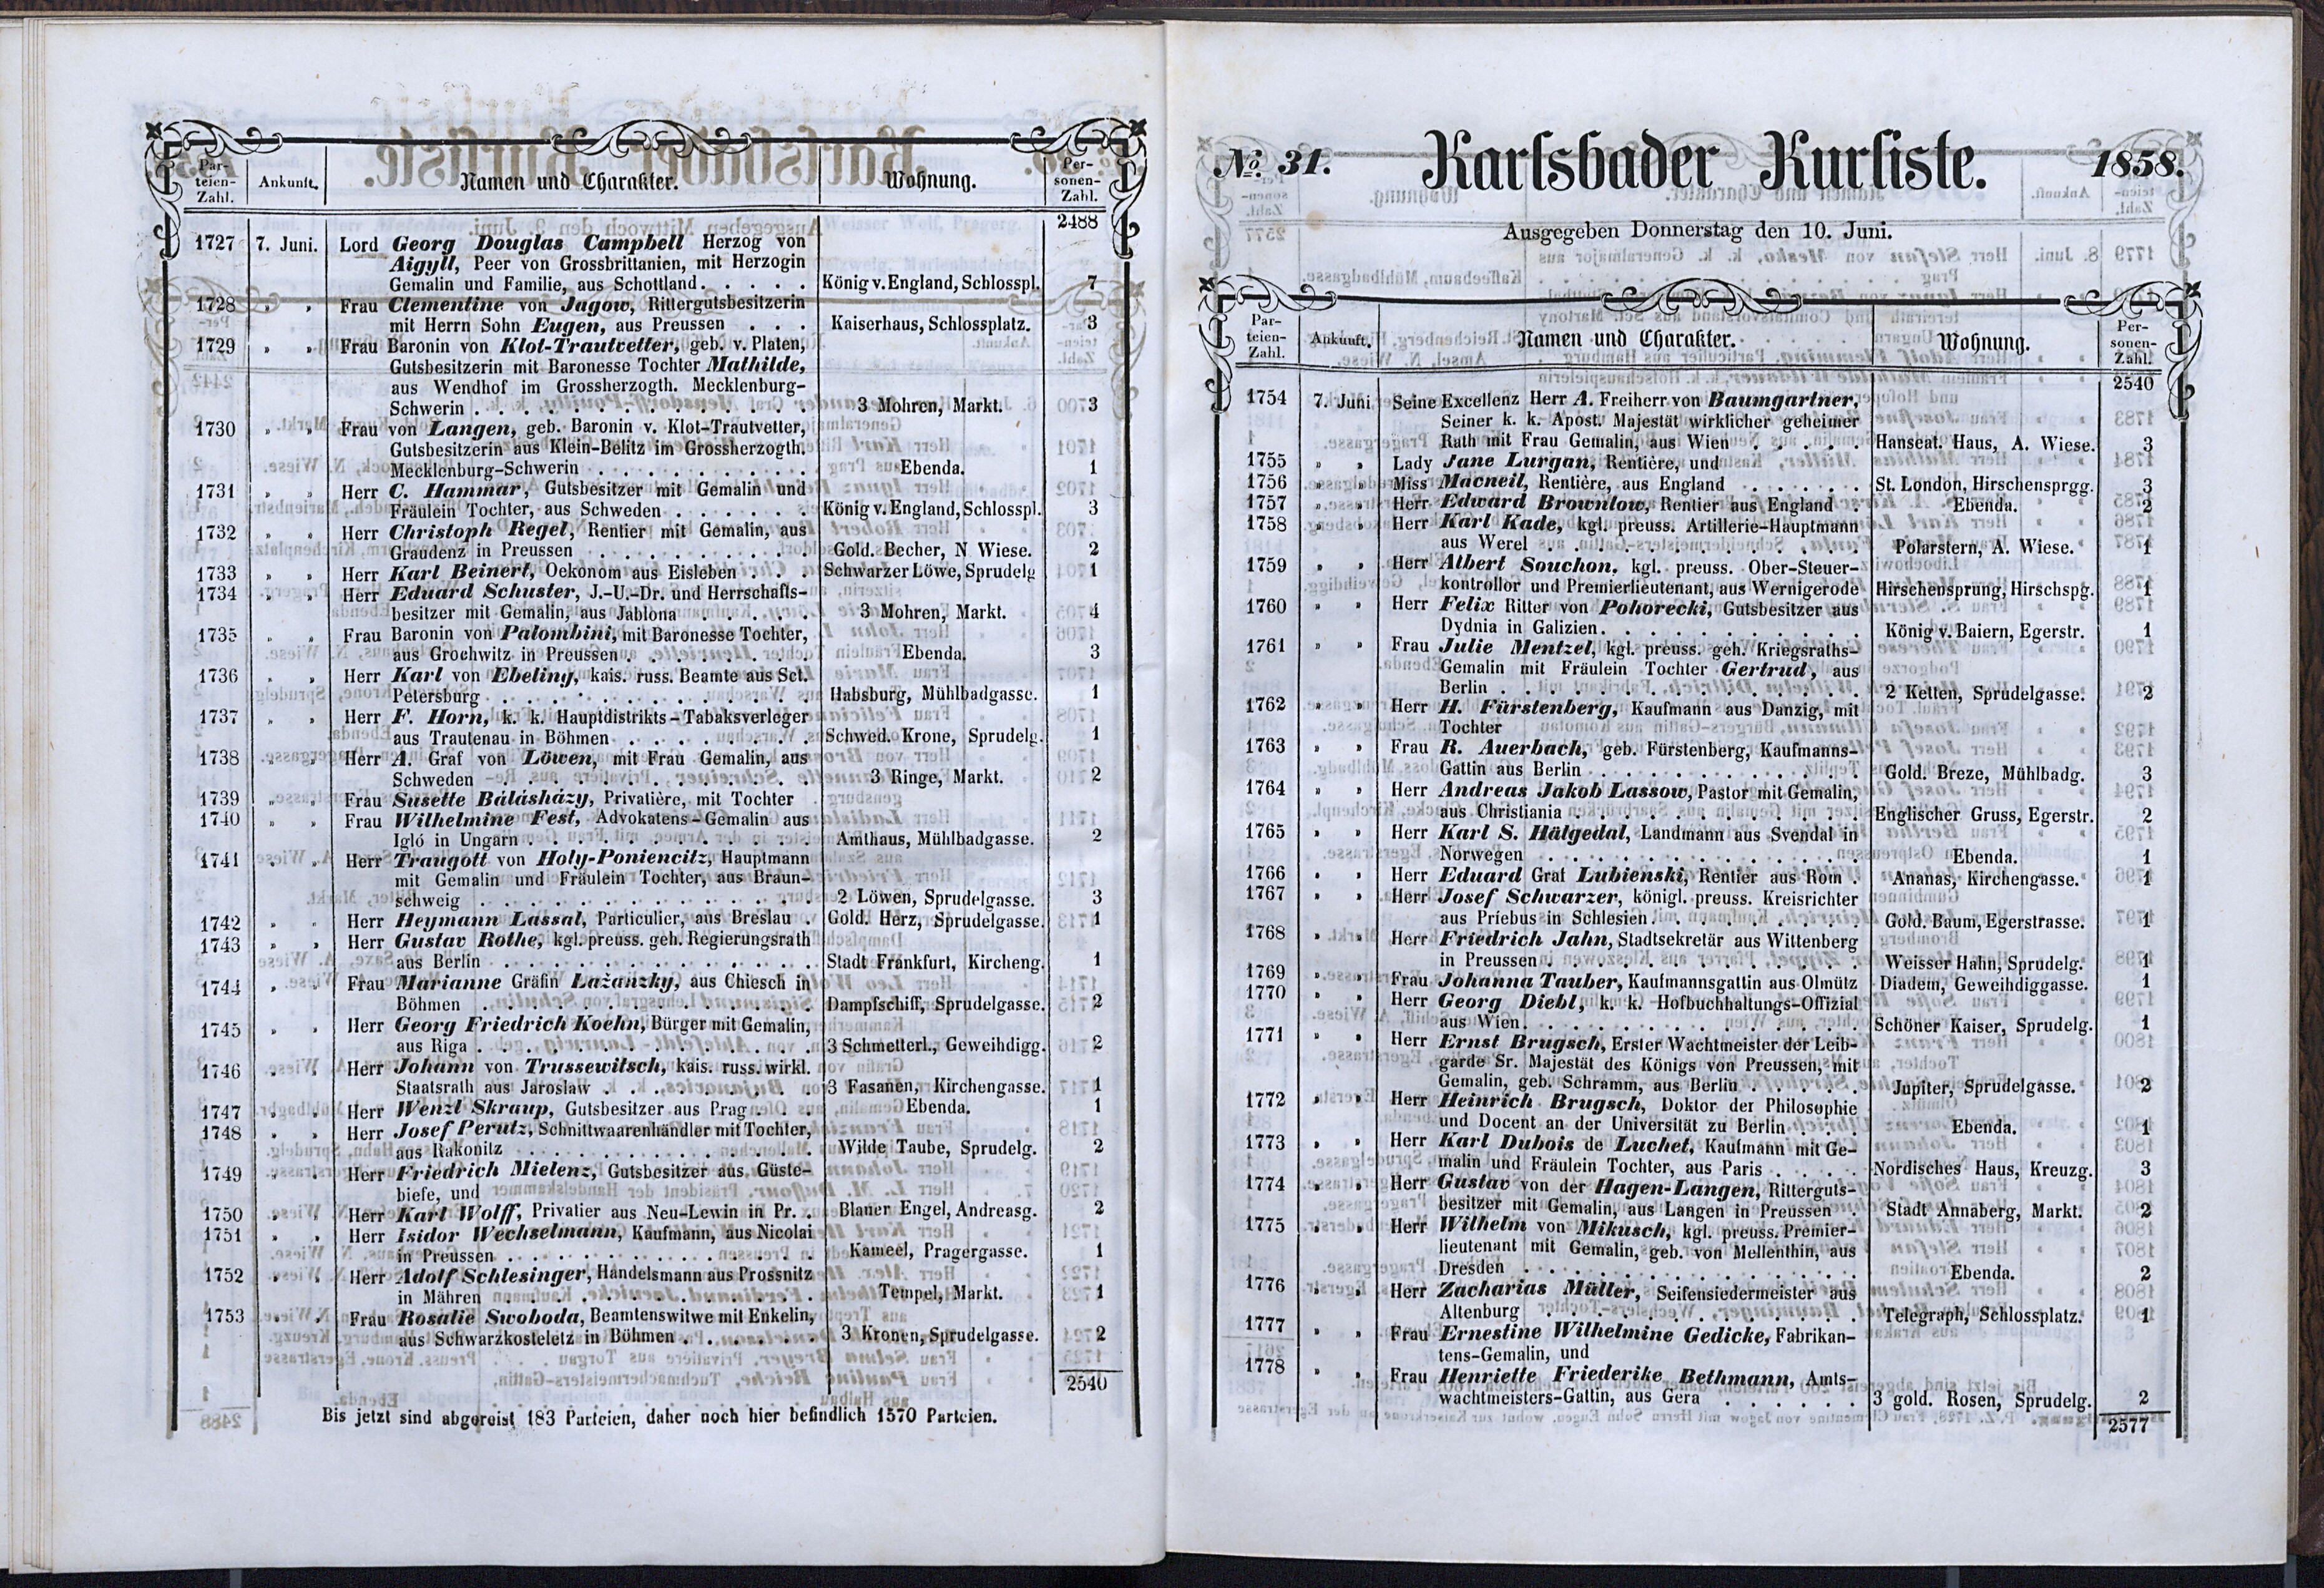 Par-
teien-
Zahl.
Ankunft.
Namen und Charakter.
Wohnung.
Per-
sonen-
Zahl.
2488
1727 7. Juni. Lord Georg Douglas Campbell Herzog von
Aigyll, Peer von Grossbrittanien, mit Herzogin
Gemalin und Familie, aus Schottland. . . . . . König v. England, Schlosspl. 7
1728 " " Frau Clementine von Jagow, Rittergutsbesitzerin
mit Herrn Sohn Eugen, aus Preussen . . . Kaiserhaus, Schlossplatz. 3
1729 " " Frau Baronin von Klot-Trautvetter, geb. v. Platen,
Gutsbesitzerin mit Baronesse Tochter Mathilde,
aus Wendhof im Grossherzogth. Mecklenburg-
Schwerin . . . . . . . . . . . . . . 3 Mohren, Markt. 3
1730 " " Frau von Langen, geb. Baronin v. Klot-Trautvetter,
Gutsbesitzerin aus Klein-Belitz im Grossherzogth.
Mecklenburg-Schwerin . . . . . . . . . Ebenda. 1
1731 " " Herr C. Hammar, Gutsbesitzer mit Gemalin und
Fräulein Tochter, aus Schweden . . . . . . König v. England, Schlosspl. 3
1732 " " Herr Christoph Regel, Rentier mit Gemalin, aus
Graudenz in Preussen . . . . . . . . . Gold. Becher, N Wiese. 2
1733 " " Herr Karl Beinert, Oekonom aus Eisleben . . . Schwarzer Löwe, Sprudelg 1
1734 " " Herr Eduard Schuster, J.-U.-Dr. und Herrschafts-
besitzer mit Gemalin, aus Jablona . . . . . 3 Mohren, Markt. 4
1735 " " Frau Baronin von Palombini, mit Baronesse Tochter,
aus Grochwitz in Preussen . . . . . . . . Ebenda. 3
1736 " " Herr Karl von Ebeling, kais. russ. Beamte aus Sct.
Petersburg . . . . . . . . . . . . . Habsburg, Mühlbadgasse. 1
1737 " " Herr F. Horn, k. k. Hauptdistrikts-Tabaksverleger
aus Trautenau in Böhmen . . . . . . . . Schwed. Krone, Sprudelg. 1
1738 " " Herr A. Graf von Löwen, mit Frau Gemalin, aus
Schweden . . . . . . . . . . . . . 3 Ringe, Markt. 2
1739 " " Frau Susette Bálásházy, Privatière, mit Tochter
1740 " " Frau Wilhelmine Fest, Advokatens-Gemalin aus
Igló in Ungarn . . . . . . . . . . . . Amthaus, Mühlbadgasse. 2
1741 " " Herr Traugott von Holy-Poniencitz, Hauptmann
mit Gemalin und Fräulein Tochter, aus Braun-
schweig . . . . . . . . . . . . . . 2 Löwen, Sprudelgasse. 3
1742 " " Herr Heymann Lassal, Particulier, aus Breslau . Gold. Herz, Sprudelgasse. 1
1743 " " Herr Gustav Rothe, kgl. preuss. geh. Regierungsrath
aus Berlin . . . . . . . . . . . . . Stadt Frankfurt, Kircheng. 1
1744 " " Frau Marianne Gräfin Lažanzky, aus Chiesch in
Böhmen . . . . . . . . . . . . . . Dampfschiff, Sprudelgasse. 2
1745 " " Herr Georg Friedrich Koehn, Bürger mit Gemalin,
aus Riga . . . . . . . . . . . . . . 3 Schmetterl., Geweihdigg. 2
1746 " " Herr Johann von Trussewitsch, kais. russ. wirkl.
Staatsrath aus Jaroslaw . . . . . . . . . 3 Fasanen, Kirchengasse. 1
1747 " " Herr Wenzl Skraup, Gutsbesitzer aus Prag . . . Ebenda. 1
1748 " " Herr Josef Perutz, Schnittwaarenhändler mit Tochter,
aus Rakonitz . . . . . . . . . . . . . Wilde Taube, Sprudelg. 2
1749 " " Herr Friedrich Mielenz, Gutsbesitzer aus Güste-
biefe, und
1750 " " Herr Karl Wolff, Privatier aus Neu-Lewin in Pr. . Blauer Engel, Andreasg. 2
1751 " " Herr Isidor Wechselmann, Kaufmann, aus Nicolai
in Preussen . . . . . . . . . . . . . Kameel, Pragergasse. 1
1752 " " Herr Adolf Schlesinger, Handelsmann aus Prossnitz
in Mähren . . . . . . . . . . . . . Tempel, Markt. 1
1753 " " Frau Rosalie Swoboda, Beamtenswitwe mit Enkelin,
aus Schwarzkosteletz in Böhmen . . . . . . 3 Kronen, Sprudelgasse. 2
2540
Bis jetzt sind abgereist 183 Parteien, daher noch hier befindlich 1570 Parteien.
No. 31. Karlsbader Kurliste. 1858.
Ausgegeben Donnerstag den 10. Juni.
Par-
teien-
Zahl.
Ankunft.
Namen und Charakter.
Wohnung.
Per-
sonen-
Zahl.
2540
1754 7. Juni Seine Excellenz Herr A. Freiherr von Baumgartner,
Seiner k. k. Apost. Majestät wirklicher geheimer
Rath mit Frau Gemalin, aus Wien . . . . . Hanseat. Haus, A. Wiese. 3
1755 " " Lady Jane Lurgan, Rentière, und
1756 " " Miss Macneil, Rentière, aus England . . . . . St. London, Hirschensprgg. 3
1757 " " Herr Edward Brownlow, Rentier aus England . Ebenda. 2
1758 " " Herr Karl Kade, kgl. preuss. Artillerie-Hauptmann
aus Werel . . . . . . . . . . . . . Polarstern, A. Wiese. 1
1759 " " Herr Albert Souchon, kgl. preuss. Ober-Steuer-
kontrollor und Premierlieutenant, aus Wernigerode Hirschensprung, Hirschspg. 1
1760 " " Herr Felix Ritter von Pohorecki, Gutsbesitzer aus
Dydnia in Galizien. . . . . . . . . . . König v. Baiern, Egerstr. 1
1761 " " Frau Julie Mentzel, kgl. preuss. geh. Kriegsraths-
Gemalin mit Fräulein Tochter Gertrud, aus
Berlin . . . . . . . . . . . . . . . 2 Ketten, Sprudelgasse. 2
1762 " " Herr H. Fürstenberg, Kaufmann aus Danzig, mit
Tochter
1763 " " Frau R. Auerbach, geb. Fürstenberg, Kaufmanns-
Gattin aus Berlin . . . . . . . . . . . Gold. Breze, Mühlbadg. 3
1764 " " Herr Andreas Jakob Lassow, Pastor mit Gemalin,
aus Christiania . . . . . . . . . . . . Englischer Gruss, Egerstr. 2
1765 " " Herr Karl S. Hålgedal, Landmann aus Svendal in
Norwegen . . . . . . . . . . . . . . Ebenda. 1
1766 " " Herr Eduard Graf Lubienski, Rentier aus Rom . Ananas, Kirchengasse. 1
1767 " " Herr Josef Schwarzer, königl. preuss. Kreisrichter
aus Priebus in Schlesien . . . . . . . . . Gold. Baum, Egerstrasse. 1
1768 " " Herr Friedrich Jahn, Stadtsekretär aus Wittenberg
in Preussen . . . . . . . . . . . . . Weisser Hahn, Sprudelg. 1
1769 " " Frau Johanna Tauber, Kaufmannsgattin aus Olmütz Diadem, Geweihdiggasse. 1
1770 " " Herr Georg Diebl, k. k. Hofbuchhaltungs-Offizial
aus Wien. . . . . . . . . . . . . . Schöner Kaiser, Sprudelg. 1
1771 " " Herr Ernst Brugsch, Erster Wachtmeister der Leib-
garde Sr. Majestät des Königs von Preussen, mit
Gemalin, geb. Schramm, aus Berlin . . . . . Jupiter, Sprudelgasse. 2
1772 " " Herr Heinrich Brugsch, Doktor der Philosophie
und Docent an der Universität zu Berlin . . . Ebenda. 1
1773 " " Herr Karl Dubois de Luchet, Kaufmann mit Ge-
malin und Fräulein Tochter, aus Paris . . . . Nordisches Haus, Kreuzg. 3
1774 " " Herr Gustav von der Hagen-Langen, Ritterguts-
besitzer mit Gemalin, aus Langen in Preussen . Stadt Annaberg, Markt. 2
1775 " " Herr Wilhelm von Mikusch, kgl. preuss. Premier-
lieutenant mit Gemalin, geb. von Mellenthin, aus
Dresden . . . . . . . . . . . . . . Ebenda. 2
1776 " " Herr Zacharias Müller, Seifensiedermeister aus
Altenburg . . . . . . . . . . . . . . Telegraph, Schlossplatz. 1
1777 " " Frau Ernestine Wilhelmine Gedicke, Fabrikan-
tens-Gemalin, und
1778 " " Frau Henriette Friederike Bethmann, Amts-
wachtmeisters-Gattin, aus Gera . . . . . . 3 gold. Rosen, Sprudelg. 2
2577